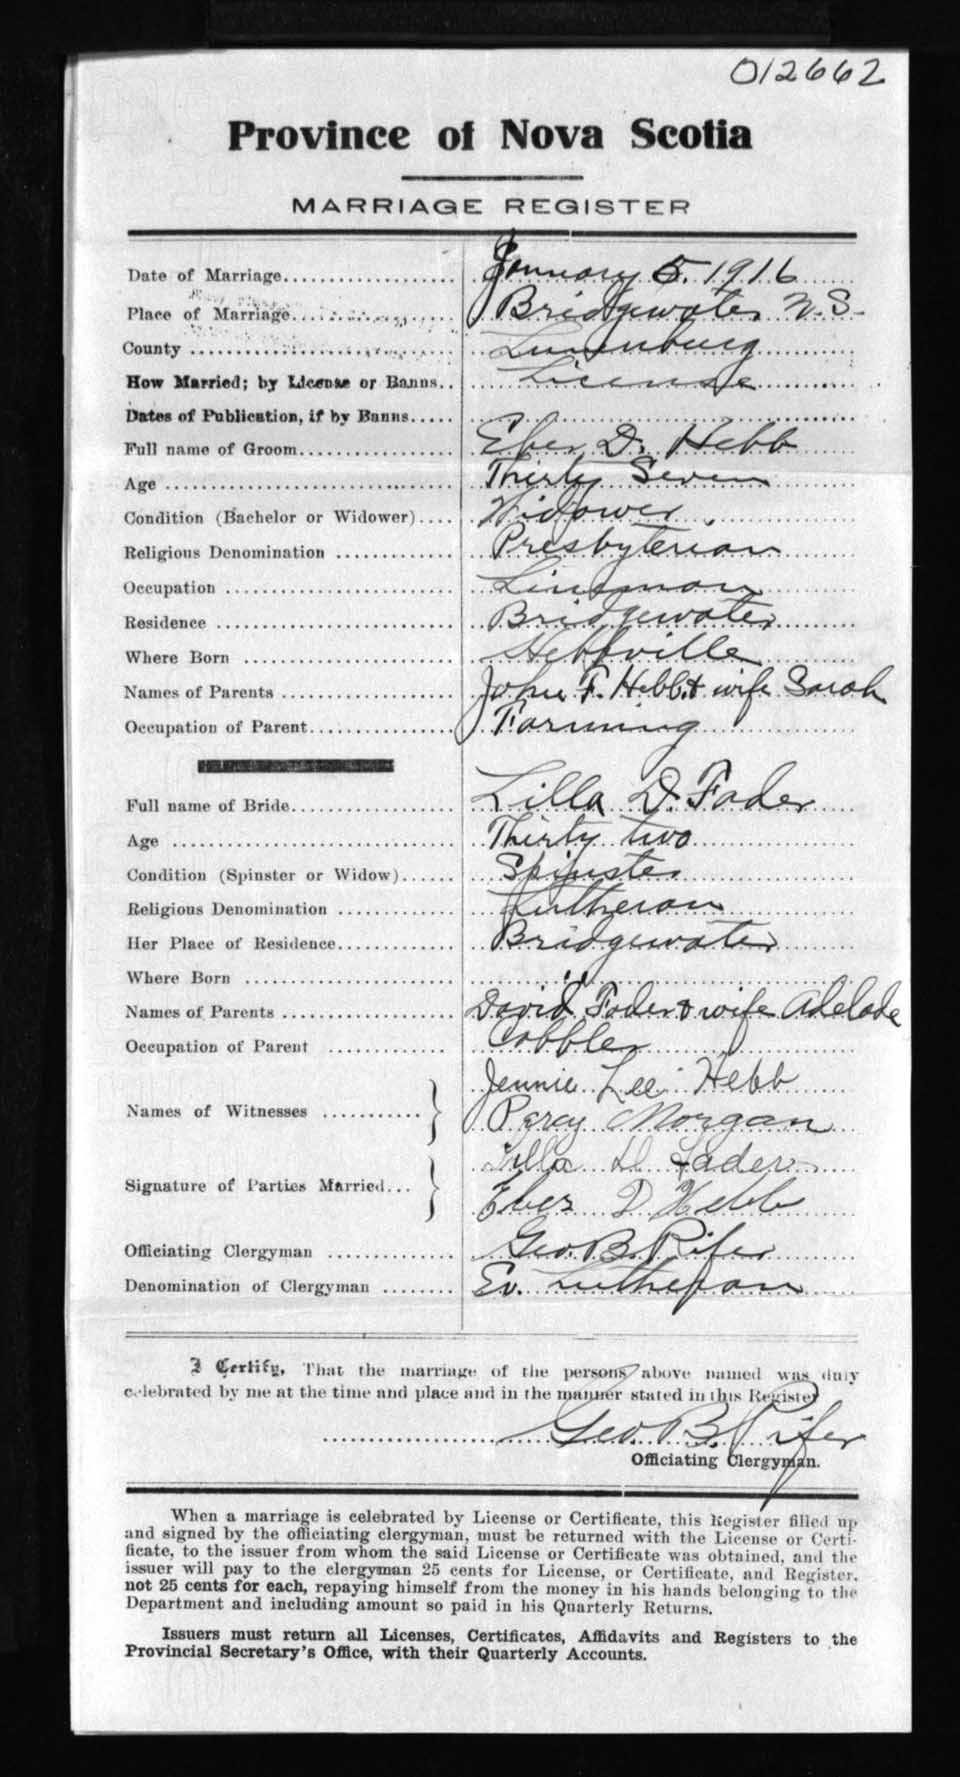 012662
Province of Nova Scotia
MARRIAGE REGISTER
Date of Marriage.................... January 5. 1916
Place of Marriage.................... Bridgewater N.S.
County .................... Lunenburg
How Married; by License or Banns.. License
Dates of Publication, if by Banns.....
Full name of Groom.................. Eber D. Hebb
Age .................... Thirty Seven
Condition (Bachelor or Widower).... Widower
Religious Denomination .............. Presbyterian
Occupation .......................... Linsman
Residence ........................... Bridgewater
Where Born ........................ Hebbville
Names of Parents .................... John F. Hebb & wife Sarah
Occupation of Parent................. Farming
Full name of Bride................... Lilla D. Fader
Age ................................ Thirty two
Condition (Spinster or Widow)...... Spinster
Religious Denomination .............. Lutheran
Her Place of Residence.............. Bridgewater
Where Born ........................ "
Names of Parents .................... David Fader & wife Adelade
Occupation of Parent .............. Cobbler
Names of Witnesses ........... } Jennie Lee Hebb
Percy Morgan
Signature of Parties Married... } Lilla D Fader
Eber D Hebb
Officiating Clergyman ............... Geo. B. Pifer
Denomination of Clergyman ........ Ev. Lutheran
I Certify, That the marriage of the persons above named was duly
celebrated by me at the time and place and in the manner stated in this Register
Geo. B. Pifer
Officiating Clergyman.
When a marriage is celebrated by License or Certificate, this Register filled up
and signed by the officiating clergyman, must be returned with the License or Certi-
ficate, to the issuer from whom the said License or Certificate was obtained, and the
issuer will pay to the clergyman 25 cents for License, or Certificate, and Register,
not 25 cents for each, repaying himself from the money in his hands belonging to the
Department and including amount so paid in his Quarterly Returns.
Issuers must return all Licenses, Certificates, Affidavits and Registers to the
Provincial Secretary's Office, with their Quarterly Accounts.